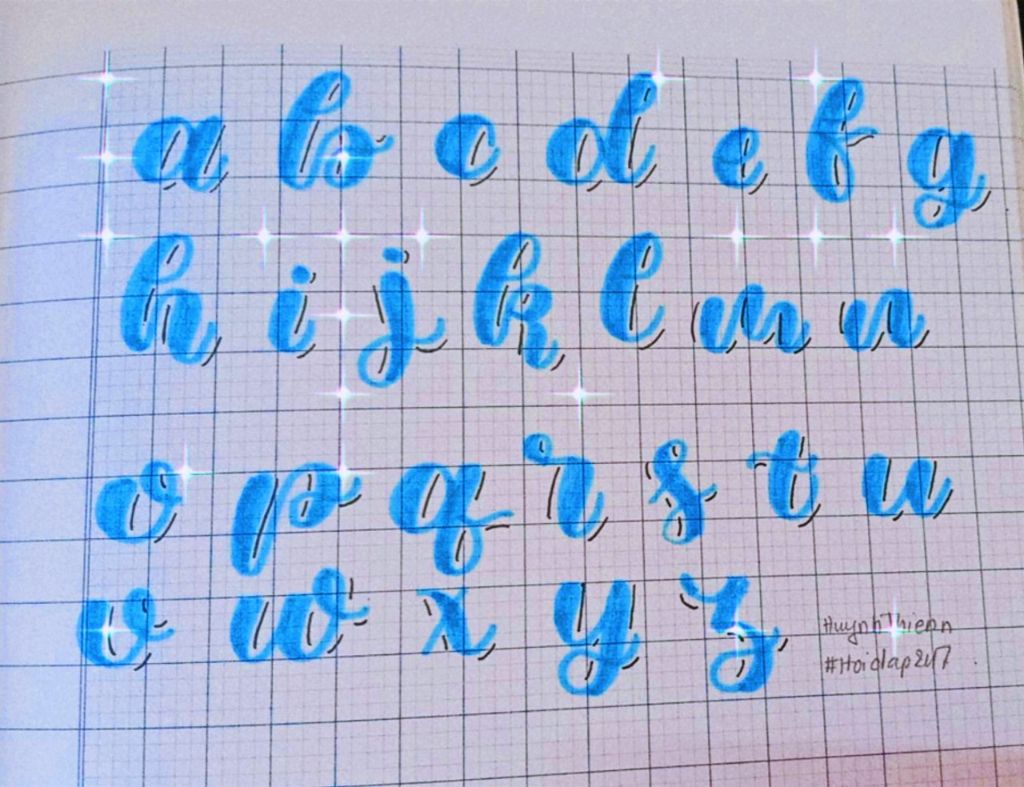 a b c d e f g
h i j k l m n
o p q r s t u
v w x y z
HuynhThienn
#Hoidap247